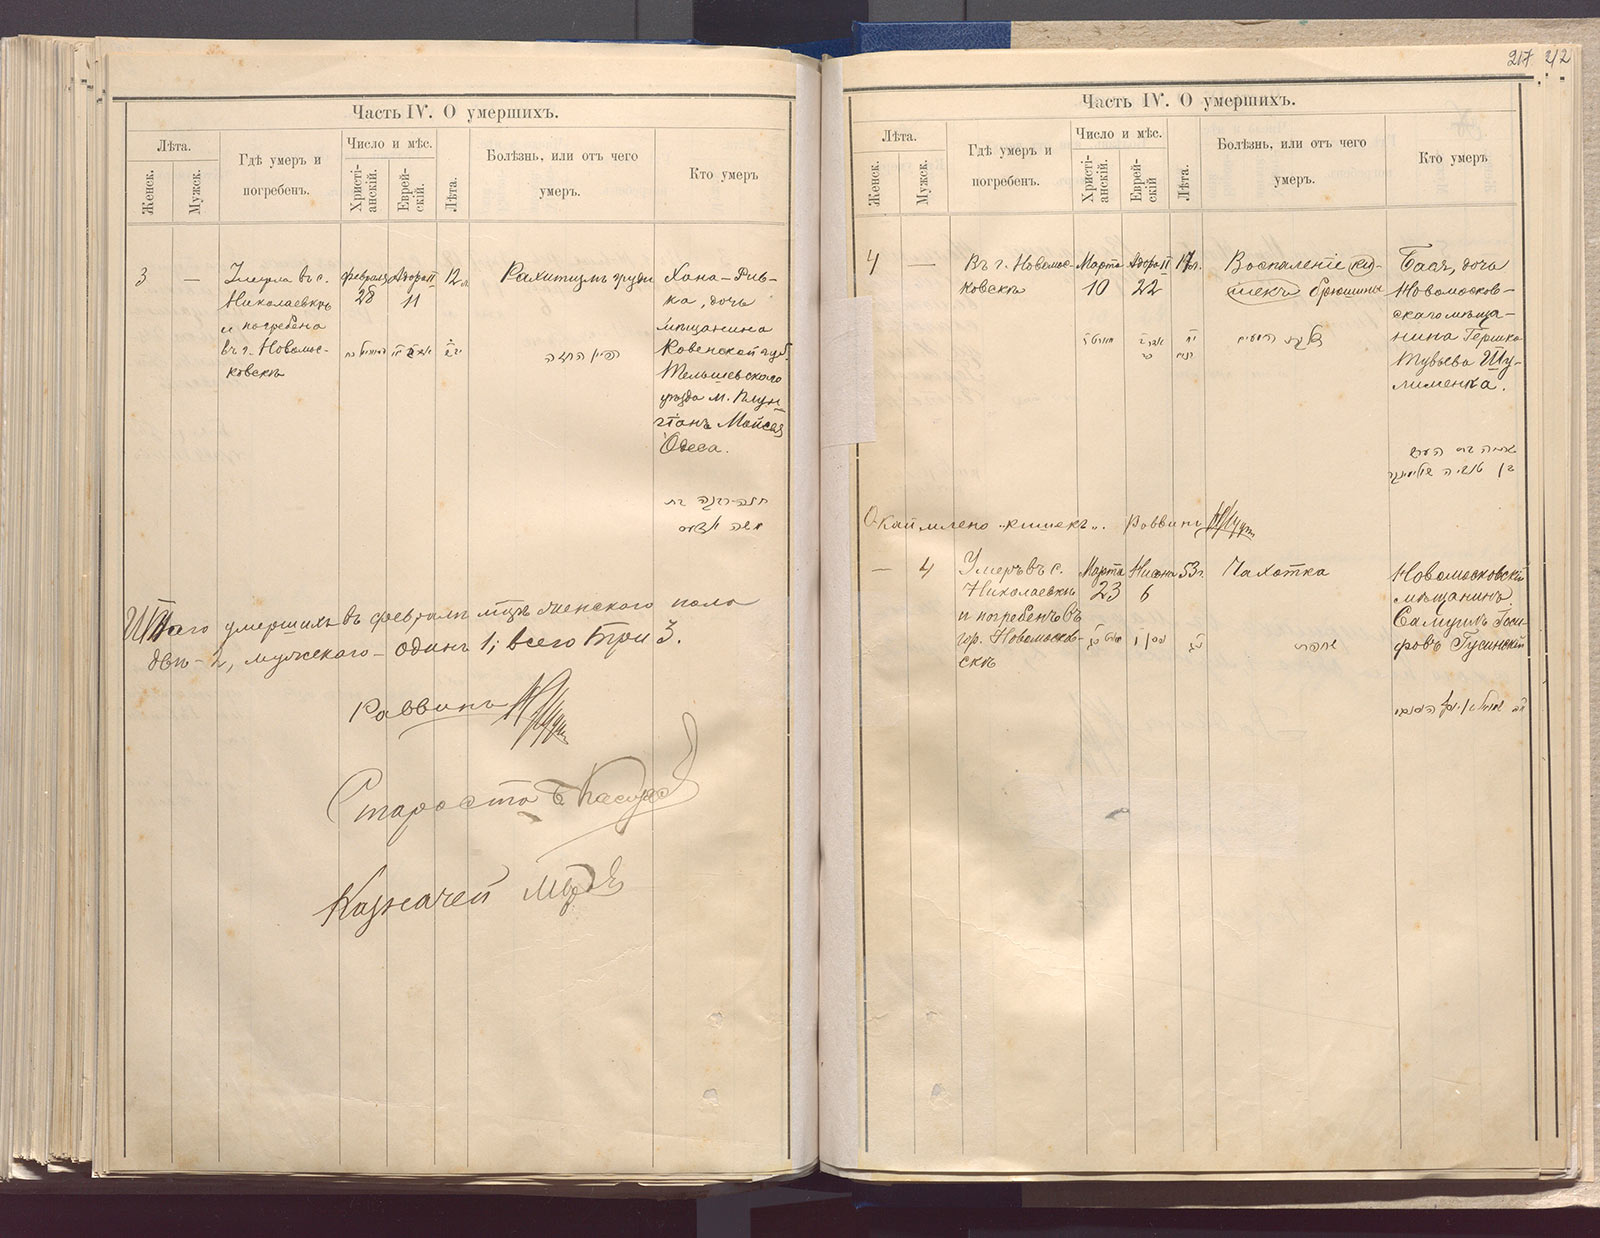 Часть IV. О умершихъ.
Лѣта.
Женск.
Мужск.
Гдѣ умеръ и
погребенъ.
Число и мѣс.
Христі-
анскій.
Еврей-
скій.
Лѣта.
Болѣзнь, или отъ чего
умеръ.
Кто умеръ
3
—
Умерла въ с.
Николаевкѣ
и погребена
въ г. Новомос-
ковскѣ
Февраля
28
Адора II
11
12 л.
Рахитизмъ груди
Хана-Рив-
ка, дочь
мѣщанина
Ковенской губ.
Тельшевского
уѣзда м. Плун-
гянъ Мойсея
Одеса.
חנה-רבקה בת
משה
Итого умершихъ въ февралѣ м-цѣ женского пола
двѣ - 2, мужского - одинъ 1; всего три 3.
Раввинъ
Староста Б
Казначей
217 212
Часть IV. О умершихъ.
Лѣта.
Женск.
Мужск.
Гдѣ умеръ и
погребенъ.
Число и мѣс.
Христі-
анскій.
Еврей-
скій
Лѣта.
Болѣзнь, или отъ чего
умеръ.
Кто умеръ
4
—
Въ г. Новомос-
ковскѣ
Марта
10
Адора II
22
17 л.
Воспаленіе киш-
шекъ брюшины
Бася, дочь
Новомосков-
скаго мѣща-
нина Гершка
Тувьева Шу-
лименка.
Окаймлено „кишекъ". Раввинъ
—
4
Умеръ въ с.
Николаевкѣ
и погребенъ въ
гор. Новомосков-
скѣ
Марта
23
Нисона
6
53 г.
Чахотка
Новомосковскій
мѣщанинъ
Самуилъ Іоси-
фовъ Гусинскій